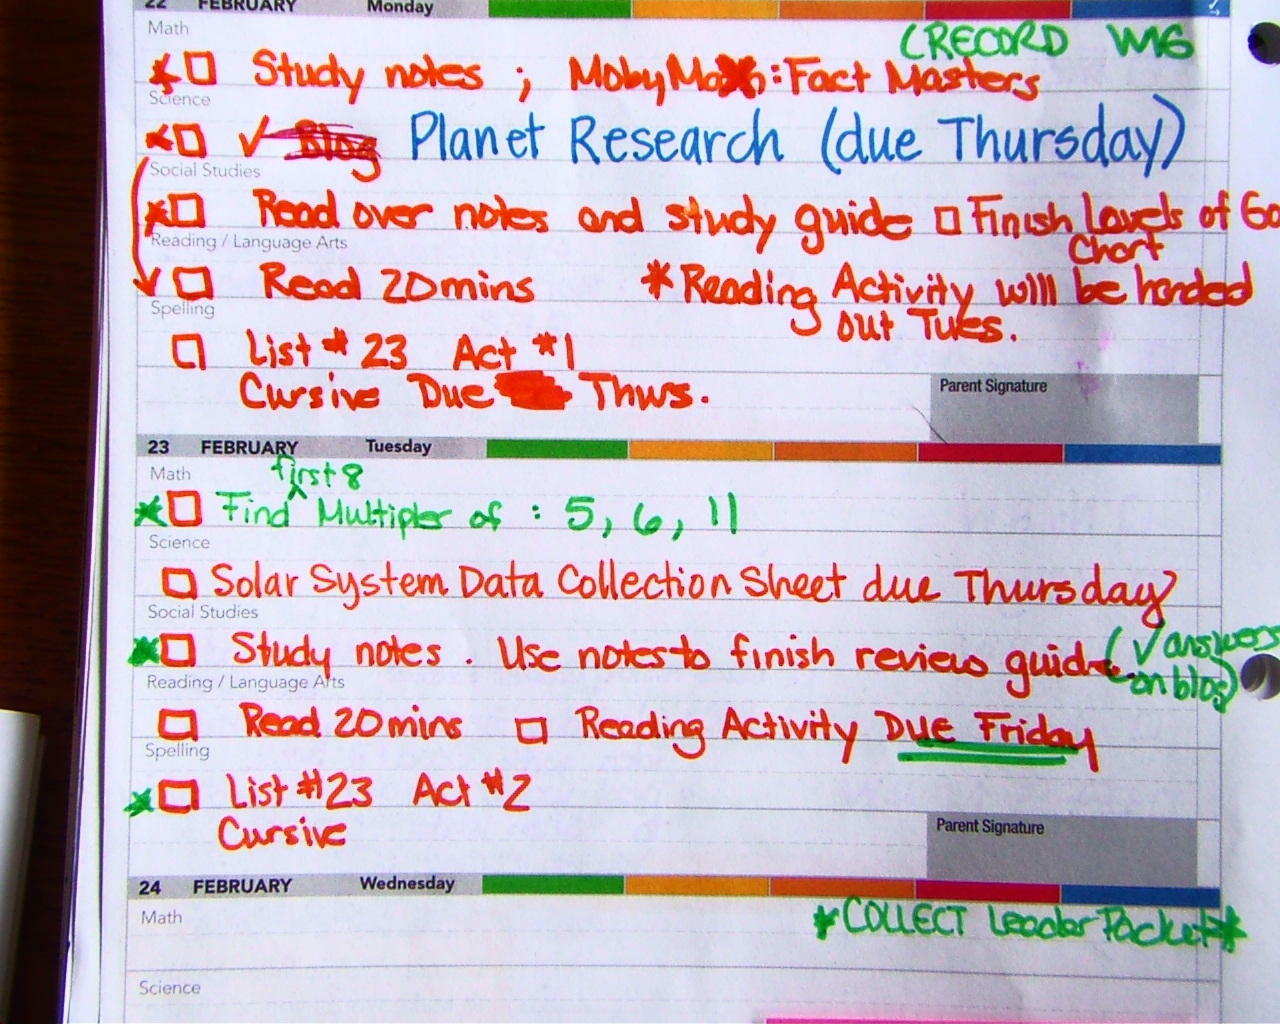 22 FEBRUARY Monday
Math
(RECORD WIG
* Study notes ; MobyMax : Fact Masters
Science
* ✓ Blog Planet Research (due Thursday)
Social Studies
* Read over notes and study guide Finish Levels of Go
Chart
Reading / Language Arts
Read 20mins *Reading Activity will be handed
out Tues.
Spelling
List #23 Act #1
Cursive Due Thurs.
Parent Signature
23 FEBRUARY Tuesday
Math
first 8
* Find ^ Multiples of : 5, 6, 11
Science
Solar System Data Collection Sheet due Thursday
Social Studies
* Study notes. Use notes to finish review guide (✓ answers
on blog)
Reading / Language Arts
Read 20mins Reading Activity Due Friday
Spelling
* List #23 Act #2
Cursive
Parent Signature
24 FEBRUARY Wednesday
Math
*COLLECT Leader Packets*
Science